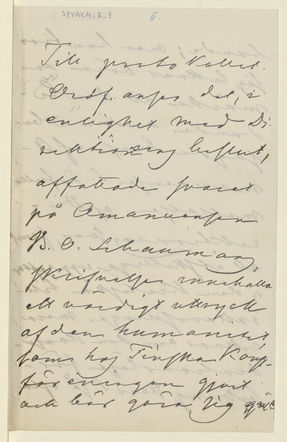 Till protokollet.
Ordf. anser det, i
enlighet med Di-
rektionens beslut,
affattade svaret
på Amanuensen
B. O. Schaumans
skrifvelse innehålla
ett värdigt uttryck
af den humanitet
som hos Finska Konst-
föreningen gjort
och bör göra sig